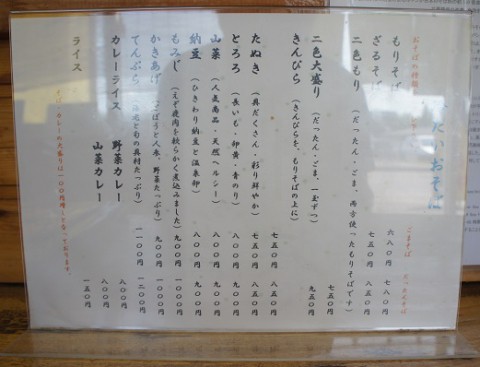 たいおそば
ごまそば だったんそば
もりそば 六八〇円 七八〇円
ざるそば 七五〇円 八五〇円
二色もり (だったん・ごま、両方使ったもりそばです) 七五〇円
二色大盛り (だったん・ごま、一玉ずつ) 九五〇円
きんぴら (きんぴらを、もりそばの上に) 七五〇円 八五〇円
たぬき (具だくさん・彩り鮮やか) 七五〇円 八五〇円
とろろ (長いも・卵黄・青のり) 八〇〇円 九〇〇円
山菜 (人意商品・天然ヘルシー) 八〇〇円 九〇〇円
納豆 (ひきわり納豆と温泉卵) 八〇〇円 九〇〇円
もみじ (えぞ鹿肉を軟らかく煮込みました) 九〇〇円 一〇〇〇円
かきあげ (ごぼうと人参、野菜たっぷり) 九〇〇円 一〇〇〇円
てんぷら (海老と旬の具材たっぷり) 一一〇〇円 一二〇〇円
カレーライス 野菜カレー 八〇〇円
山菜カレー 八〇〇円
ライス 一五〇円
そば・カレーの大盛りは一〇〇円増しとなっております。